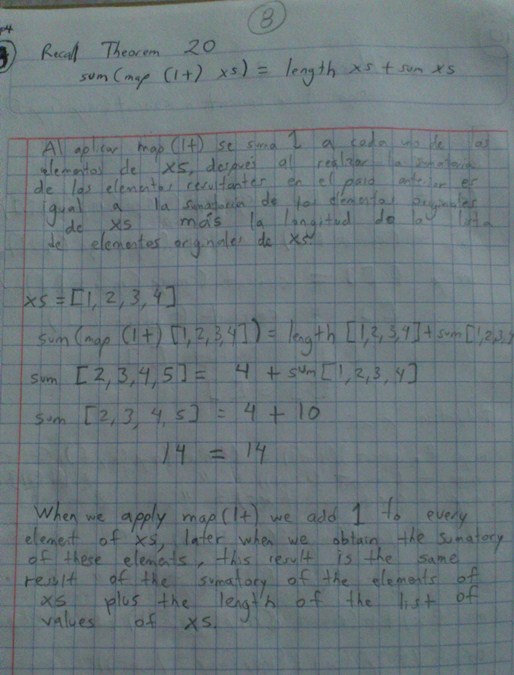 8
Recall Theorem 20
sum (map (1+) xs) = length xs + sum xs
Al aplicar map (1+) se suma 1 a cada uno de los
elementos de xs, después al realizar la sumatoria
de los elementos resultantes en el paso anterior es
igual a la sumatoria de los elementos originales
de xs más la longitud de la lista
de elementos originales de xs
xs = [1, 2, 3, 4]
sum (map (1+) [1, 2, 3, 4]) = length [1, 2, 3, 4] + sum [1, 2, 3, 4
sum [2, 3, 4, 5] = 4 + sum [1, 2, 3, 4]
sum [2, 3, 4, 5] = 4 + 10
14 = 14
When we apply map (1+) we add 1 to every
element of xs, later when we obtain the sumatory
of these elements, this result is the same
result of the sumatory of the elements of
xs plus the length of the list of
values of xs.